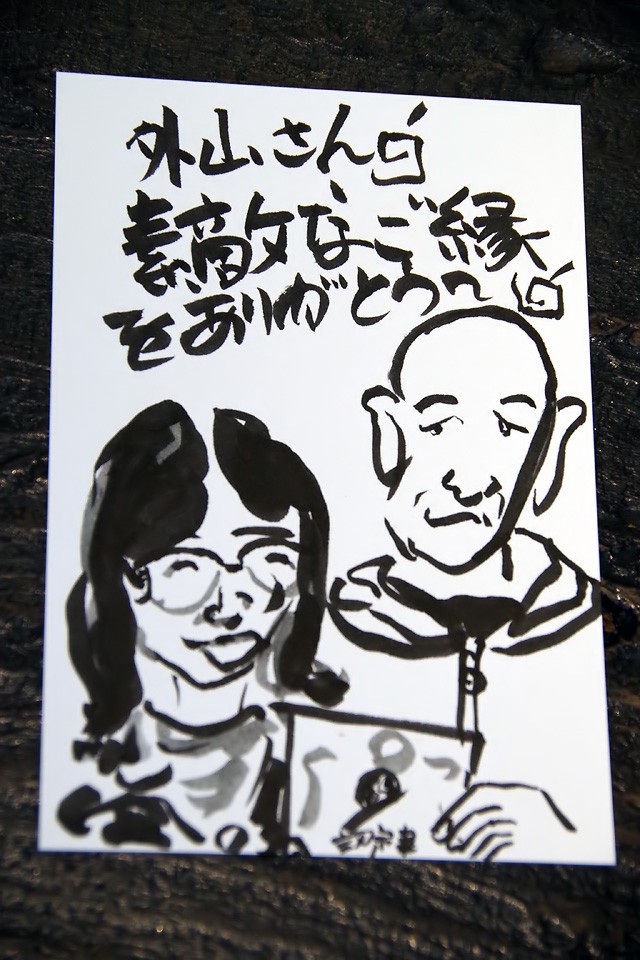 外山さん
素敵なご縁
をありがとう〜